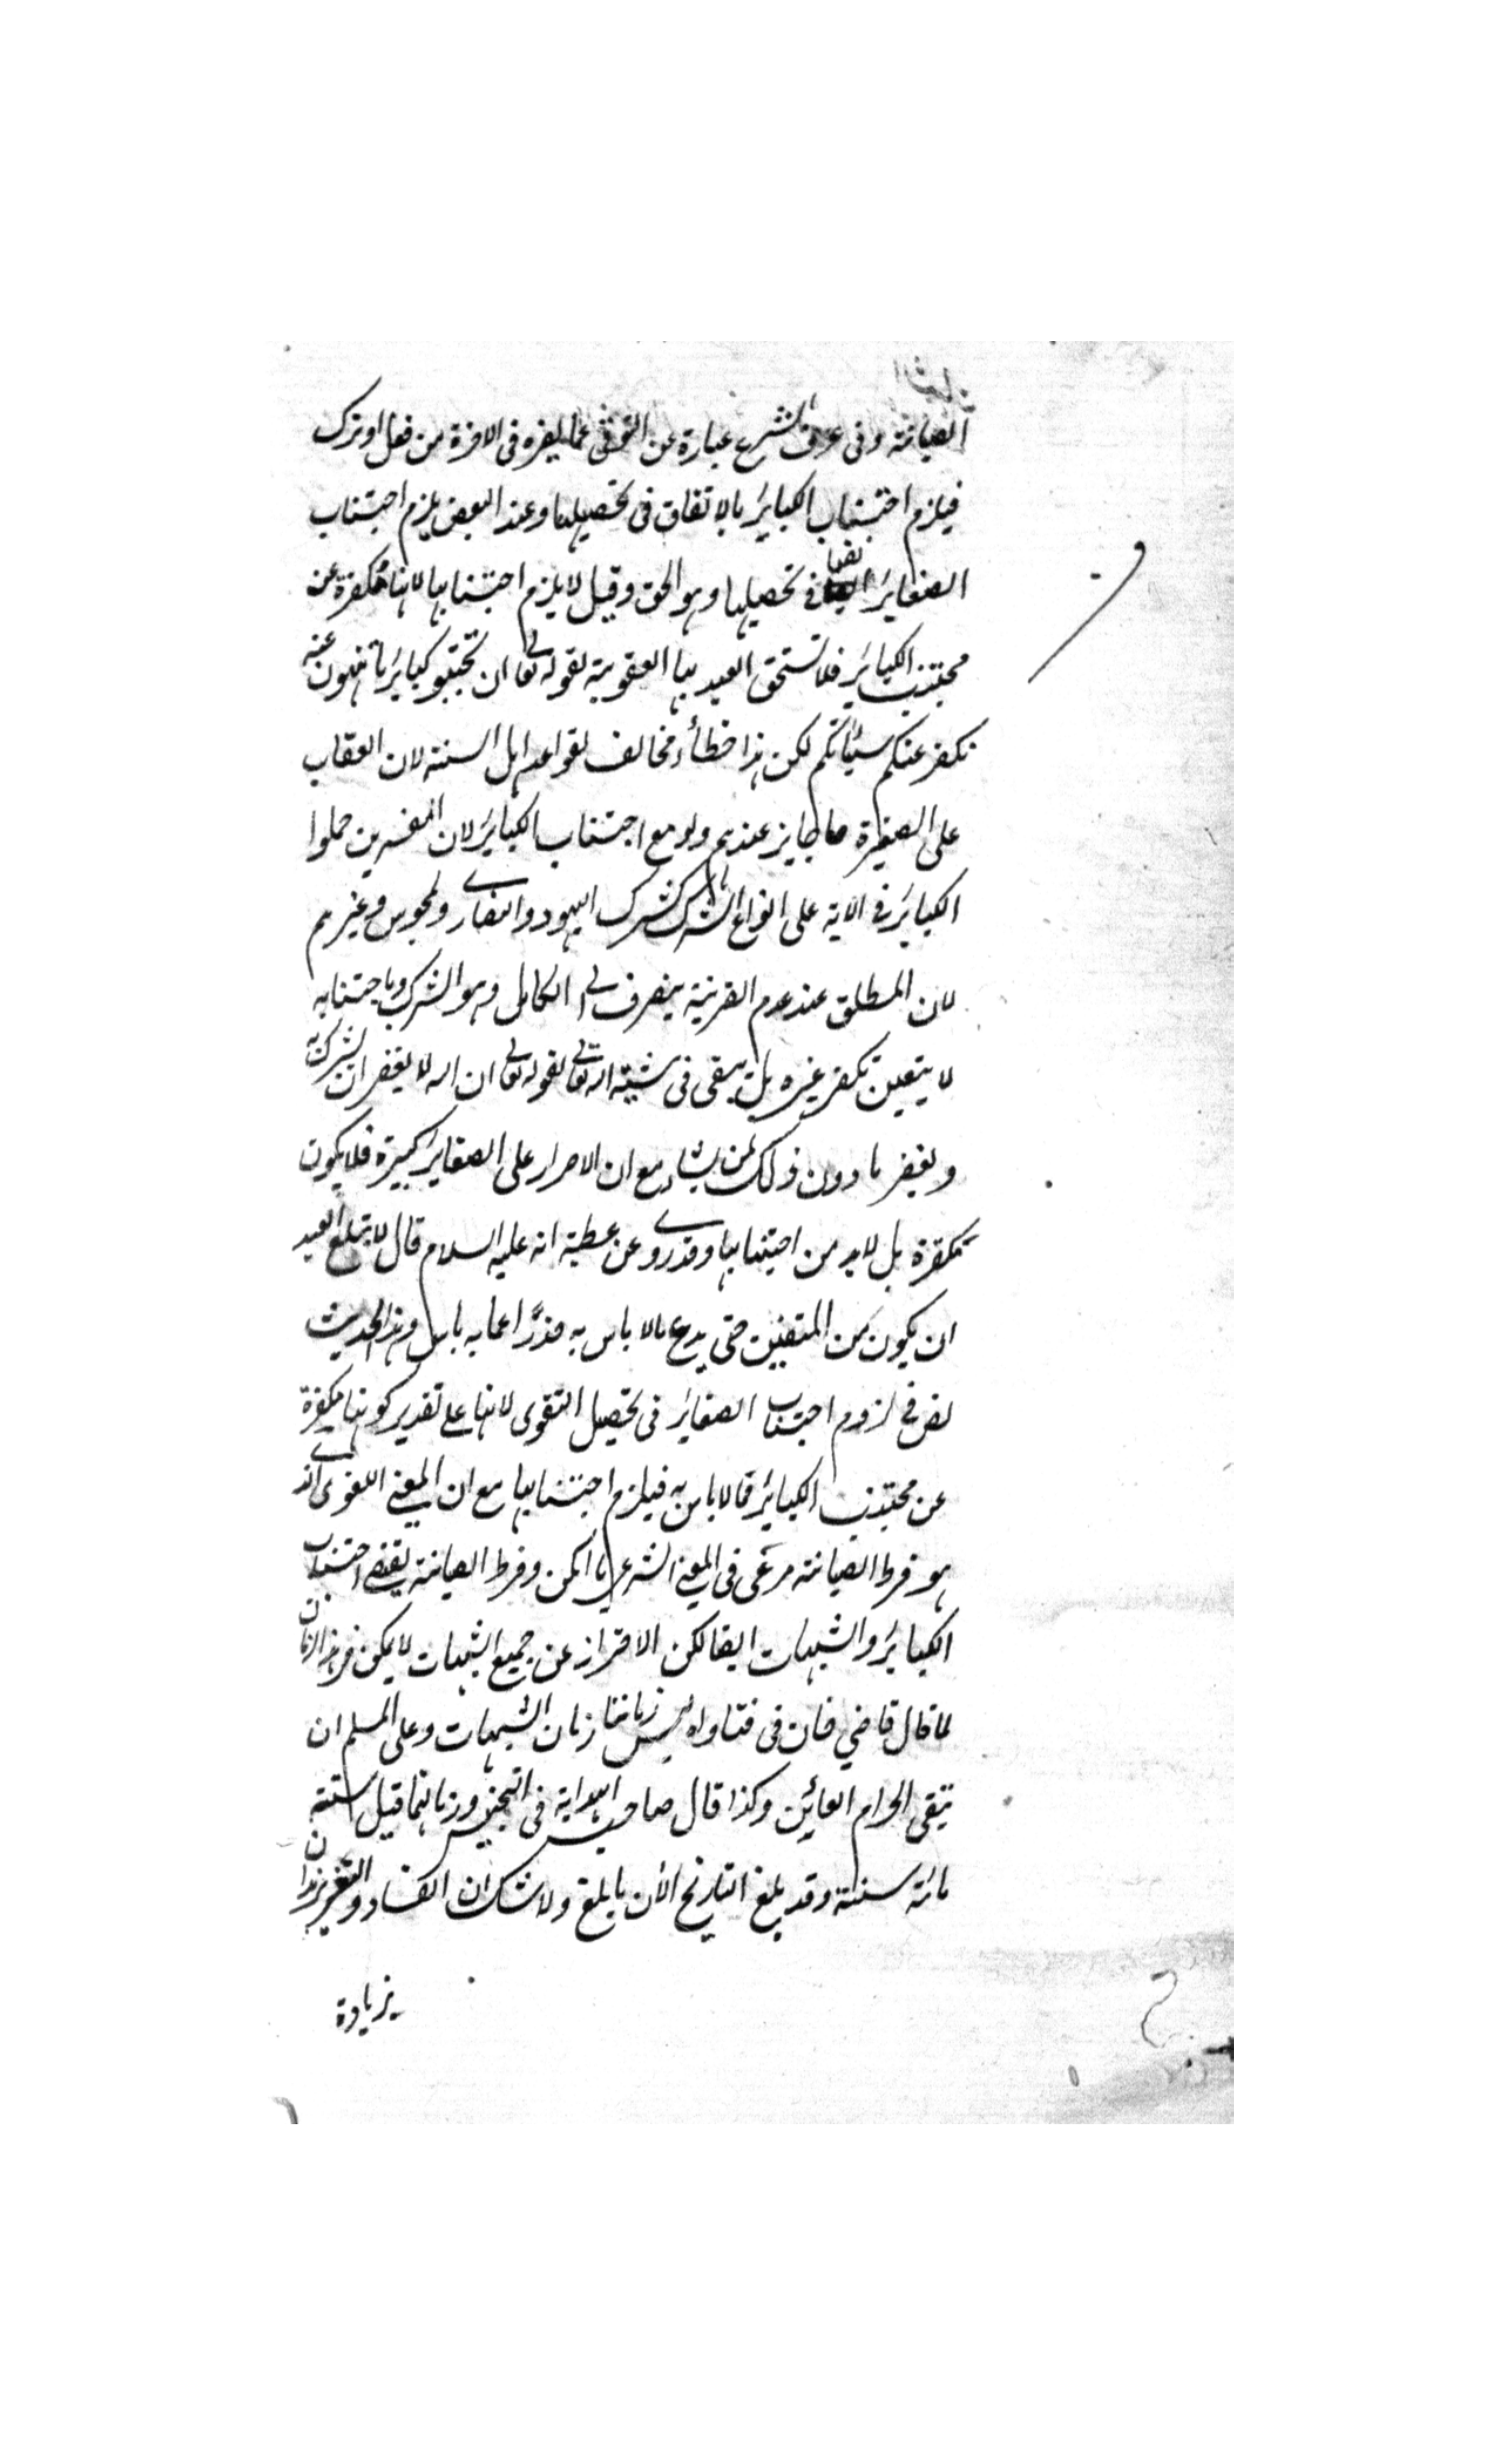 الصيانة وفى عرف الشرع عبارة عن التوقى عما يضره فى الاخرة من فعل او ترك
فيلزم اجتناب الكبائر بالاتفاق فى تحصيلها وعند البعض يلزم اجتناب
الصغائر ايضا فى تحصيلها وهو الحق وقيل لا يلزم اجتنابها لانها مكفرة عن
مجتنب الكبائر فلا تستحق العبد بها العقوبة لقوله تعالى ان تجتنبوا كبائر ما تنهون عنه
نكفر عنكم سيئاتكم لكن هذا خطأ مخالف لقواعد اهل السنة لان العقاب
على الصغيرة جايز عندهم ولو مع اجتناب الكبائر لان المفسرين حملوا
الكبائر فى الاية على انواع الشرك كشرك اليهود والنصارى والمجوس وغيرهم
لان المطلق عند عدم القرينة ينصرف الى الكامل وهو الشرك وباجتنابه
لا يتعين تكفر غيره بل يبقى فى مشيته الله تعالى لقوله تعالى ان الله لا يغفر ان يشرك به
ويغفر ما دون ذلك لمن يشاء مع ان الاصرار على الصغائر كبيرة فلا يكون
مكفرة بل لابد من اجتنابها وقد روى عن عطية انه عليه السلام قال لا يبلغ العبد
ان يكون من المتقين حتى يدع مالا باس به حذرًا عما به باس وهذا الحديث
نص فى لزوم اجتناب الصغائر فى تحصيل التقوى لانها على تقدير كونها مكفرة
عن مجتنب الكبائر مما لا باس به فيلزم اجتنابها مع ان المعنى اللغوى الذى
هو فرط الصيانة مرعى فى المعنى الشرعى ما امكن وفرط الصيانة يقتضى اجتناب
الكبائر والشبهات ايضا لكن الاحتراز عن جميع الشبهات لا يمكن فى هذا الزمان
لما قال قاضى خان فى فتاواه ليس زماننا زمان الشبهات وعلى المسلم ان
يتقى الحرام المعاين وكذا قال صاحب الهداية فى التجنيس وزمانهما قبل ستة
مائة سنة وقد بلغ التاريخ الان ما بلغ ولا شك ان الفساد والتغير يزدادان
بزيادة